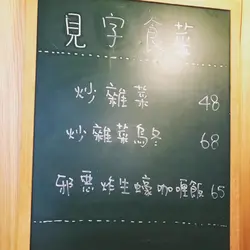 見字食菜
炒雜菜 48
炒雜菜烏冬 68
邪惡炸生蠔咖喱飯 65